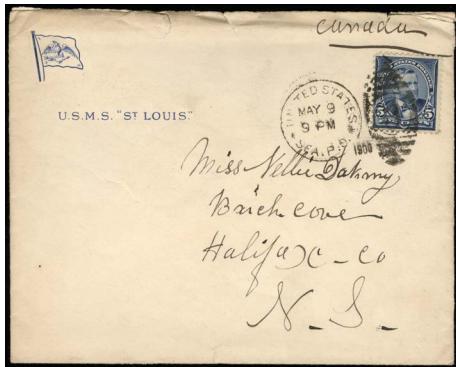 Canada
U.S.M.S. "ST LOUIS."
UNITED STATES
MAY 9
9 PM
1900
SEA.P.O.
5
Miss Nellie
Birch Cove
Halifax-co
N. S.